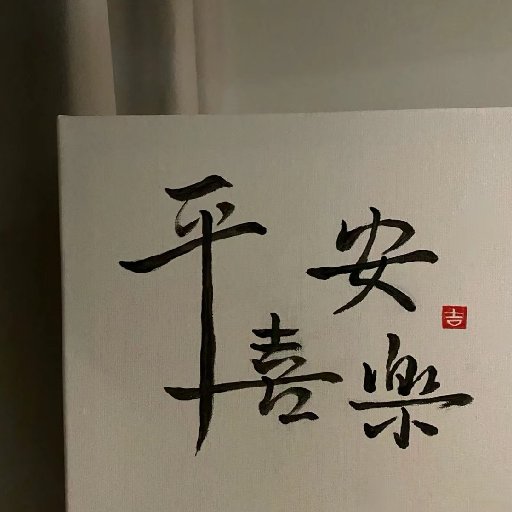 平安
喜樂
吉